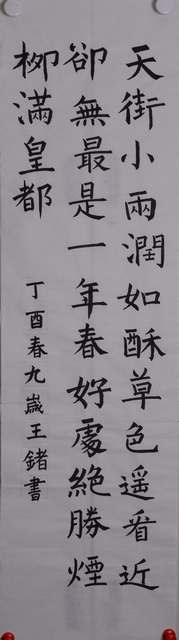 天街小雨潤如酥草色遥看近
卻無最是一年春好處絕勝煙
柳滿皇都
丁酉春九歲王鍺書